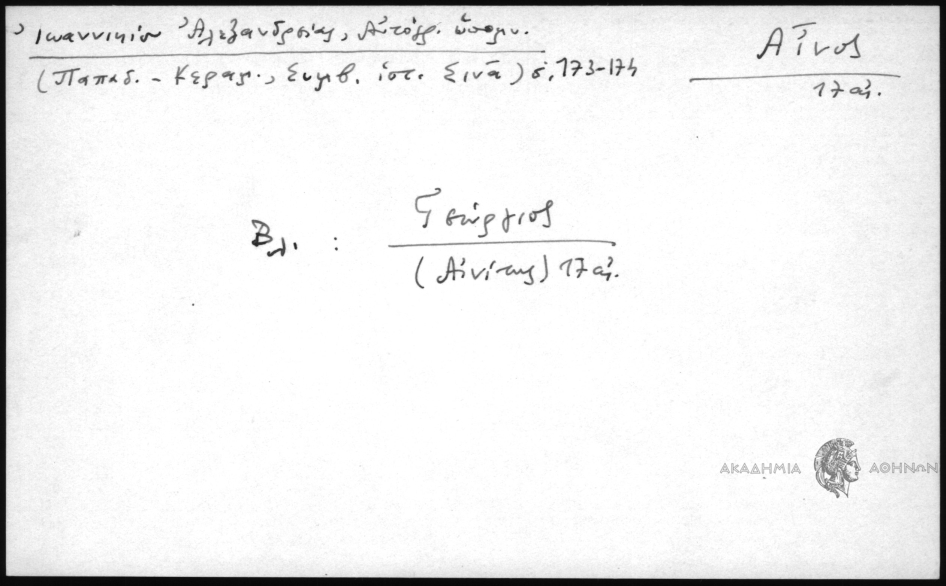 Ἰωαννικίου Ἀλεξανδρείας, Αὐτόγρ. ὑπομν.
(Παπαδ. - Κεραμ., Συμβ. ἱστ. Σινᾶ) σ. 173-174
Αἶνος
17 αἰ.
Βλ. : Γεώργιος
(Αἰνίτης) 17 αἰ.
ΑΚΑΔΗΜΙΑ ΑΘΗΝΩΝ